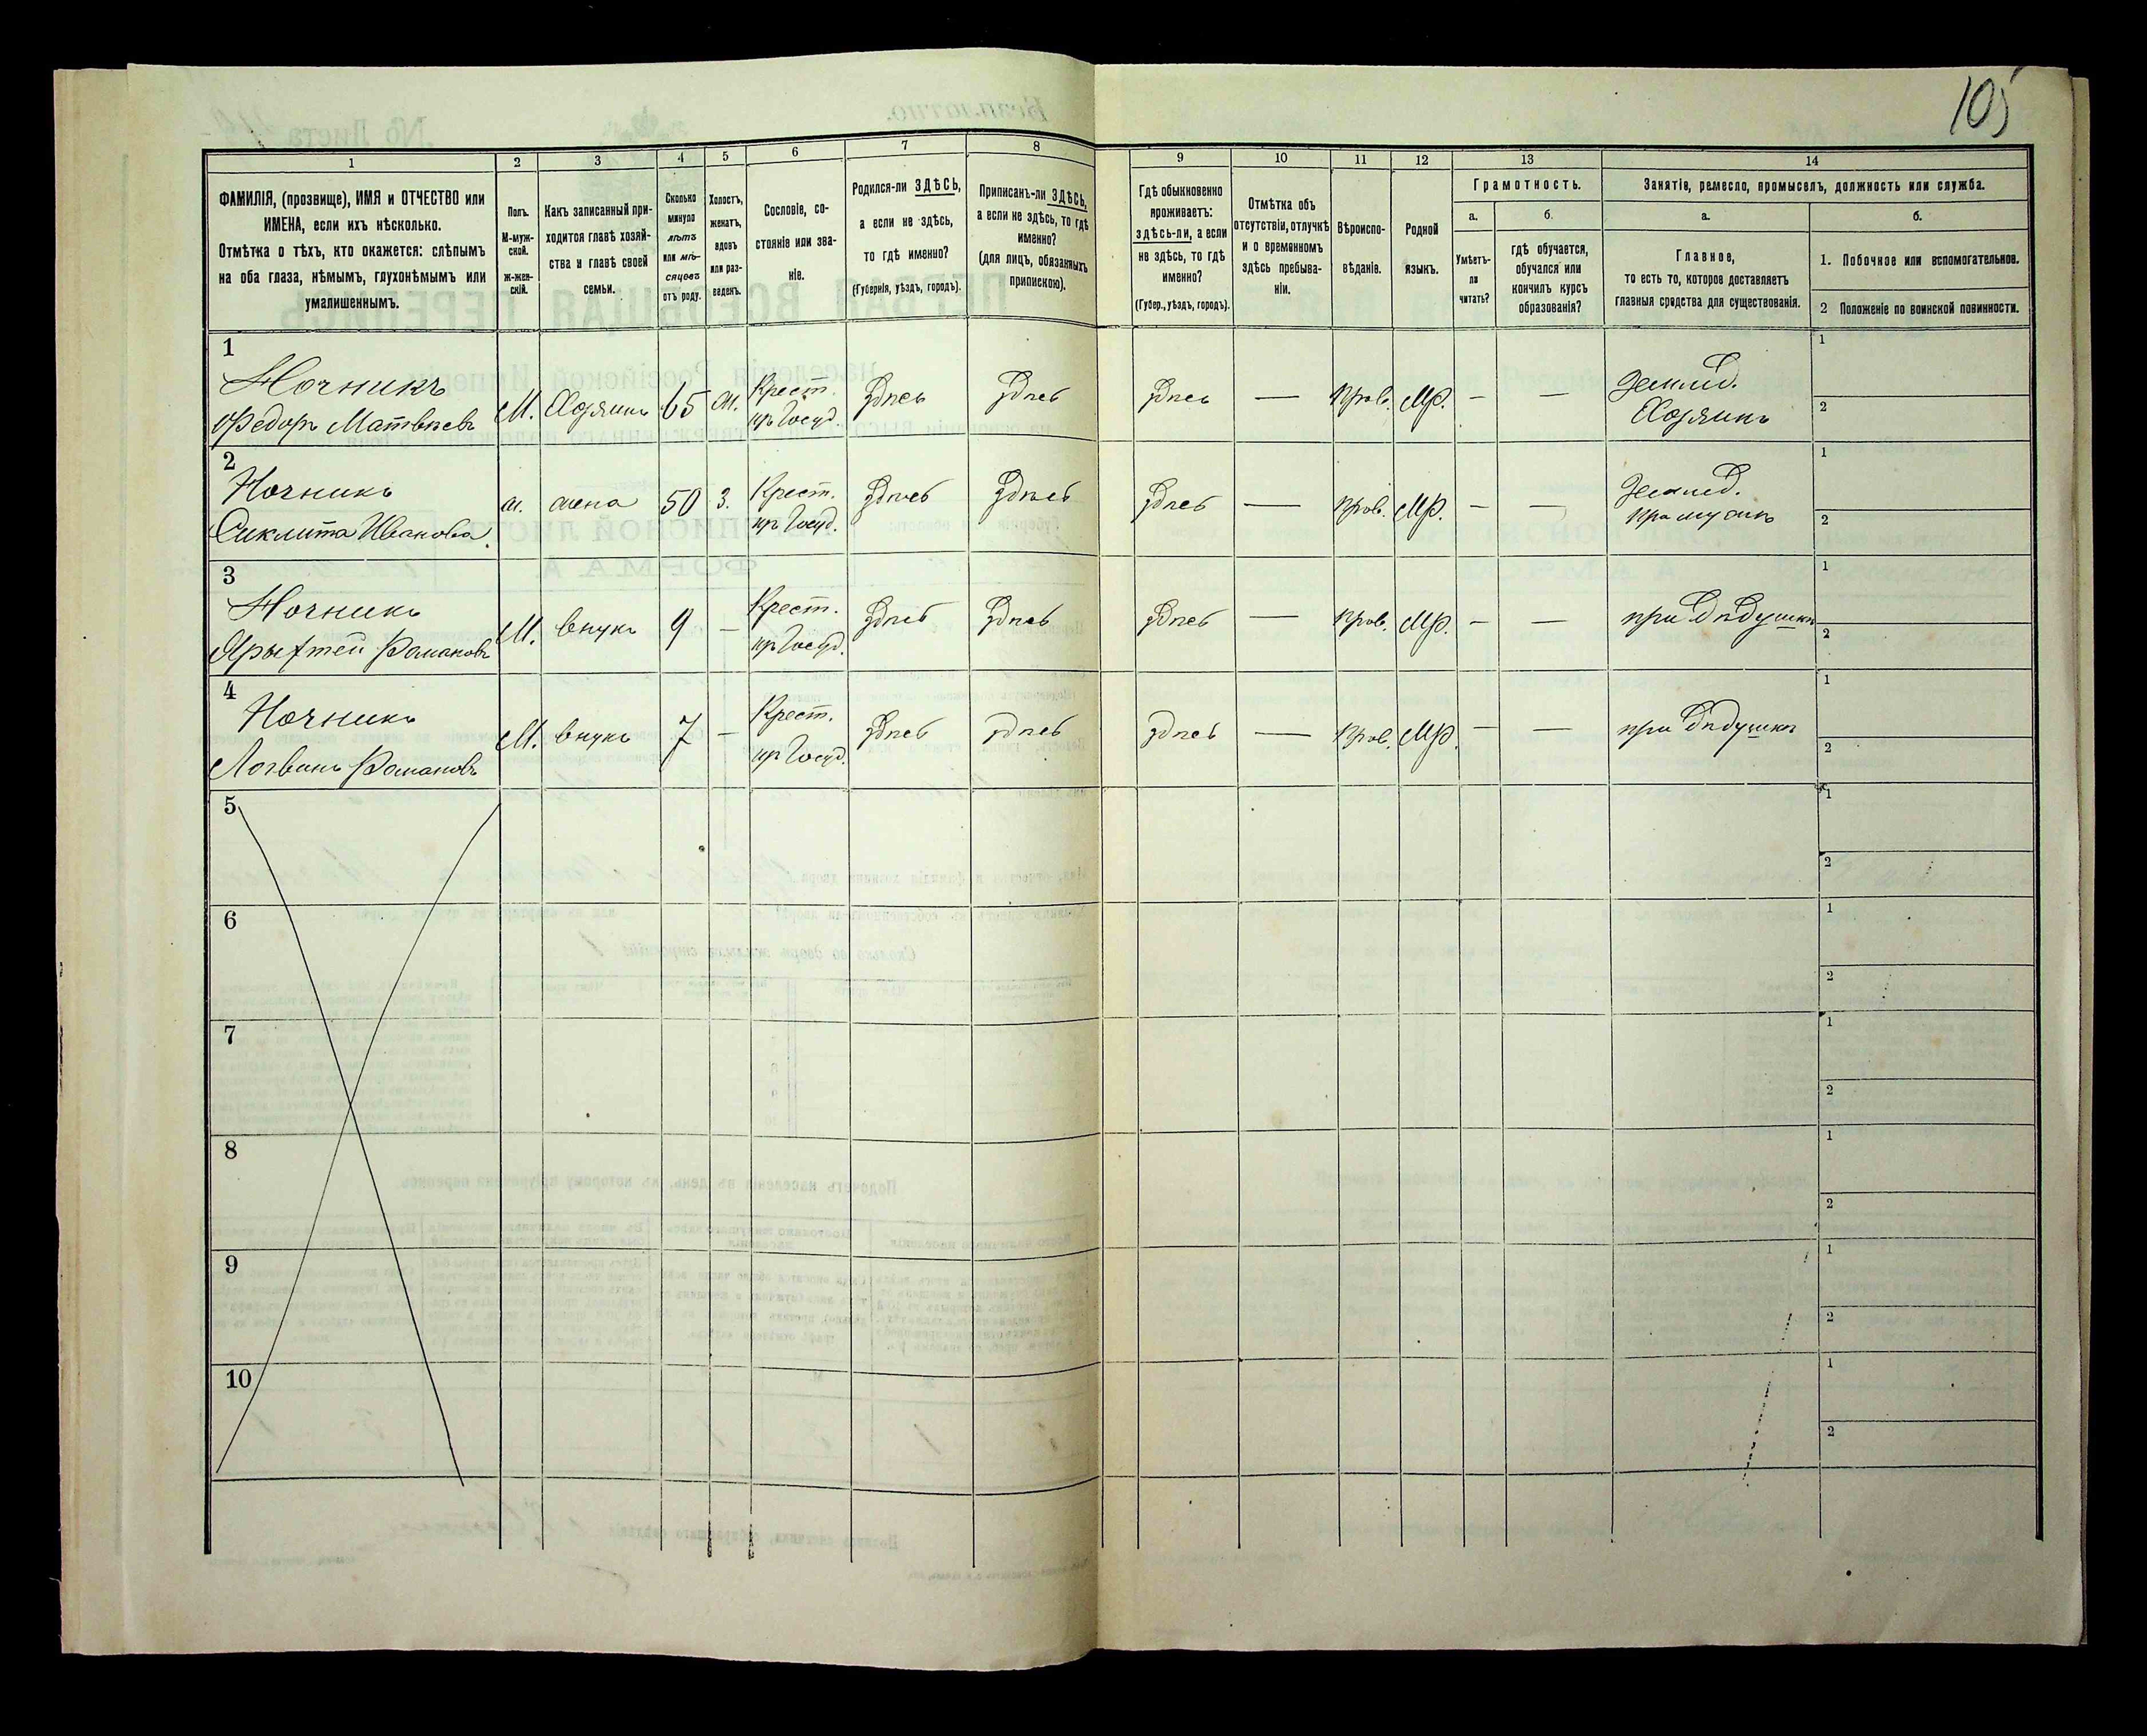 105
1
2
3
4
5
6
7
8
9
10
11
12
13
14
ФАМИЛІЯ, (прозвище), ИМЯ и ОТЧЕСТВО или
ИМЕНА, если ихъ нѣсколько.
Отмѣтка о тѣхъ, кто окажется: слѣпымъ
на оба глаза, нѣмымъ, глухонѣмымъ или
умалишеннымъ.
Полъ.
М-муж-
ской.
ж-жен-
скій.
Какъ записанный при-
ходится главѣ хозяй-
ства и главѣ своей
семьи.
Сколько
минуло
лѣтъ
или мѣ-
сяцевъ
отъ роду.
Холостъ,
женатъ,
вдовъ
или раз-
веденъ.
Сословіе, со-
стояніе или зва-
ніе.
Родился-ли ЗДѢСЬ,
а если не здѣсь,
то гдѣ именно?
(Губернія, уѣздъ, городъ).
Приписанъ-ли ЗДѢСЬ,
а если не здѣсь, то гдѣ
именно?
(для лицъ, обязанныхъ
припискою).
Гдѣ обыкновенно
проживаетъ:
здѣсь-ли, а если
не здѣсь, то гдѣ
именно?
(Губер., уѣздъ, городъ).
Отмѣтка объ
отсутствіи, отлучкѣ
и о временномъ
здѣсь пребыва-
ніи.
Вѣроиспо-
вѣданіе.
Родной
языкъ.
Грамотность.
а.
Умѣетъ-
ли
читать?
б.
гдѣ обучается,
обучался или
кончилъ курсъ
образованія?
Занятіе, ремесло, промыселъ, должность или служба.
а.
Главное,
то есть то, которое доставляетъ
главныя средства для существованія.
б.
1. Побочное или вспомогательное.
2 Положеніе по воинской повинности.
1
Ночникъ
Федоръ Матвѣевъ
М. Хозяинъ 65 ж. Крест. Здѣсь Здѣсь Здѣсь — Прав. Мр. — — Землед.
Хозяинъ
1
2
2
Ночникъ
Иванова
ж. жена 50 З. Крест. Здѣсь Здѣсь Здѣсь — Прав. Мр. — — Землед.
при мужѣ
1
2
3
Ночникъ
Романовъ
М. внукъ 9 — Крест. Здѣсь Здѣсь Здѣсь — Прав. Мр. — — при дѣдушкѣ
1
2
4
Ночникъ
Логвинъ Романовъ
М. внукъ 7 — Крест. Здѣсь здѣсь здѣсь — Прав. Мр. — — при дѣдушкѣ
1
2
5
1
2
6
1
2
7
1
2
8
1
2
9
1
2
10
1
2